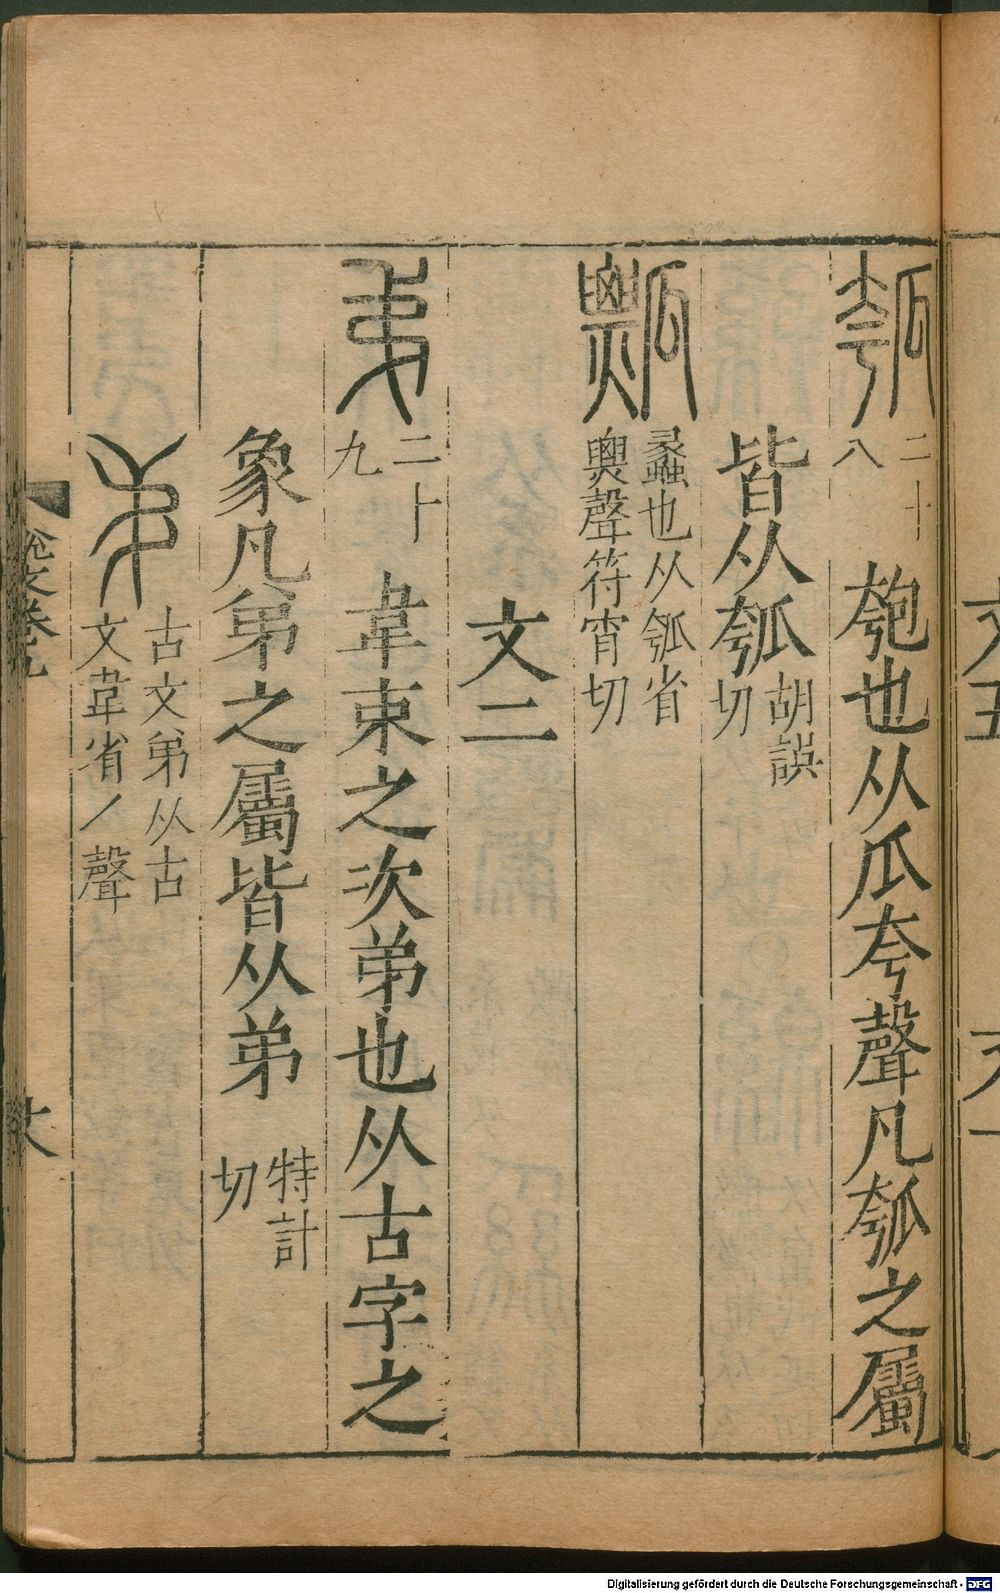 瓠 二十八 匏也从瓜夸聲凡瓠之屬
皆从瓠 胡誤切
瓢 蠡也从瓠省𤐫聲符宵切
文二
弟 二十九 韋束之次弟也从古字之
象凡弟之屬皆从弟 特計切
古文弟从古文韋省丿聲
文卷九
Digitalisierung gefördert durch die Deutsche Forschungsgemeinschaft - DFG